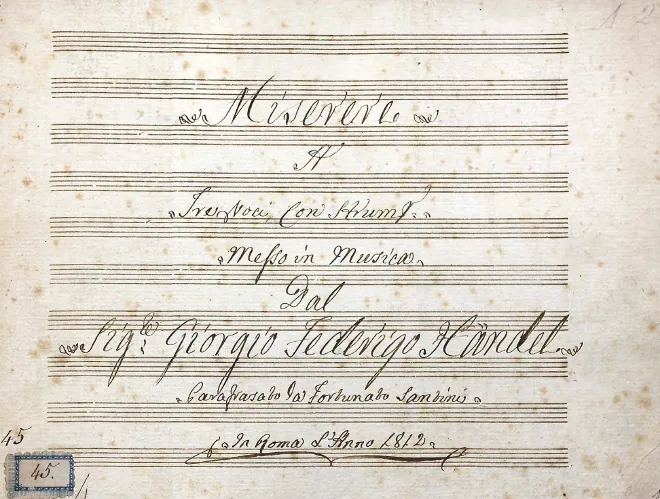 1 2
Miserere
A
Tre Voci, Con Strumti.
Messo in Musica
Dal
Sigre. Giorgio Federigo Händel
Parafrasato da Fortunato Santini
In Roma L'Anno 1812
45
45.